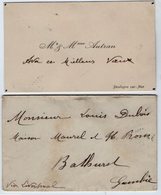 Mr & Mme Autran
Meilleurs Vœux
Boulogne sur Mer
Monsieur Louis Dubois
Maison Maurel & H. Prom
Bathurst
Gambie
Via Liverpool